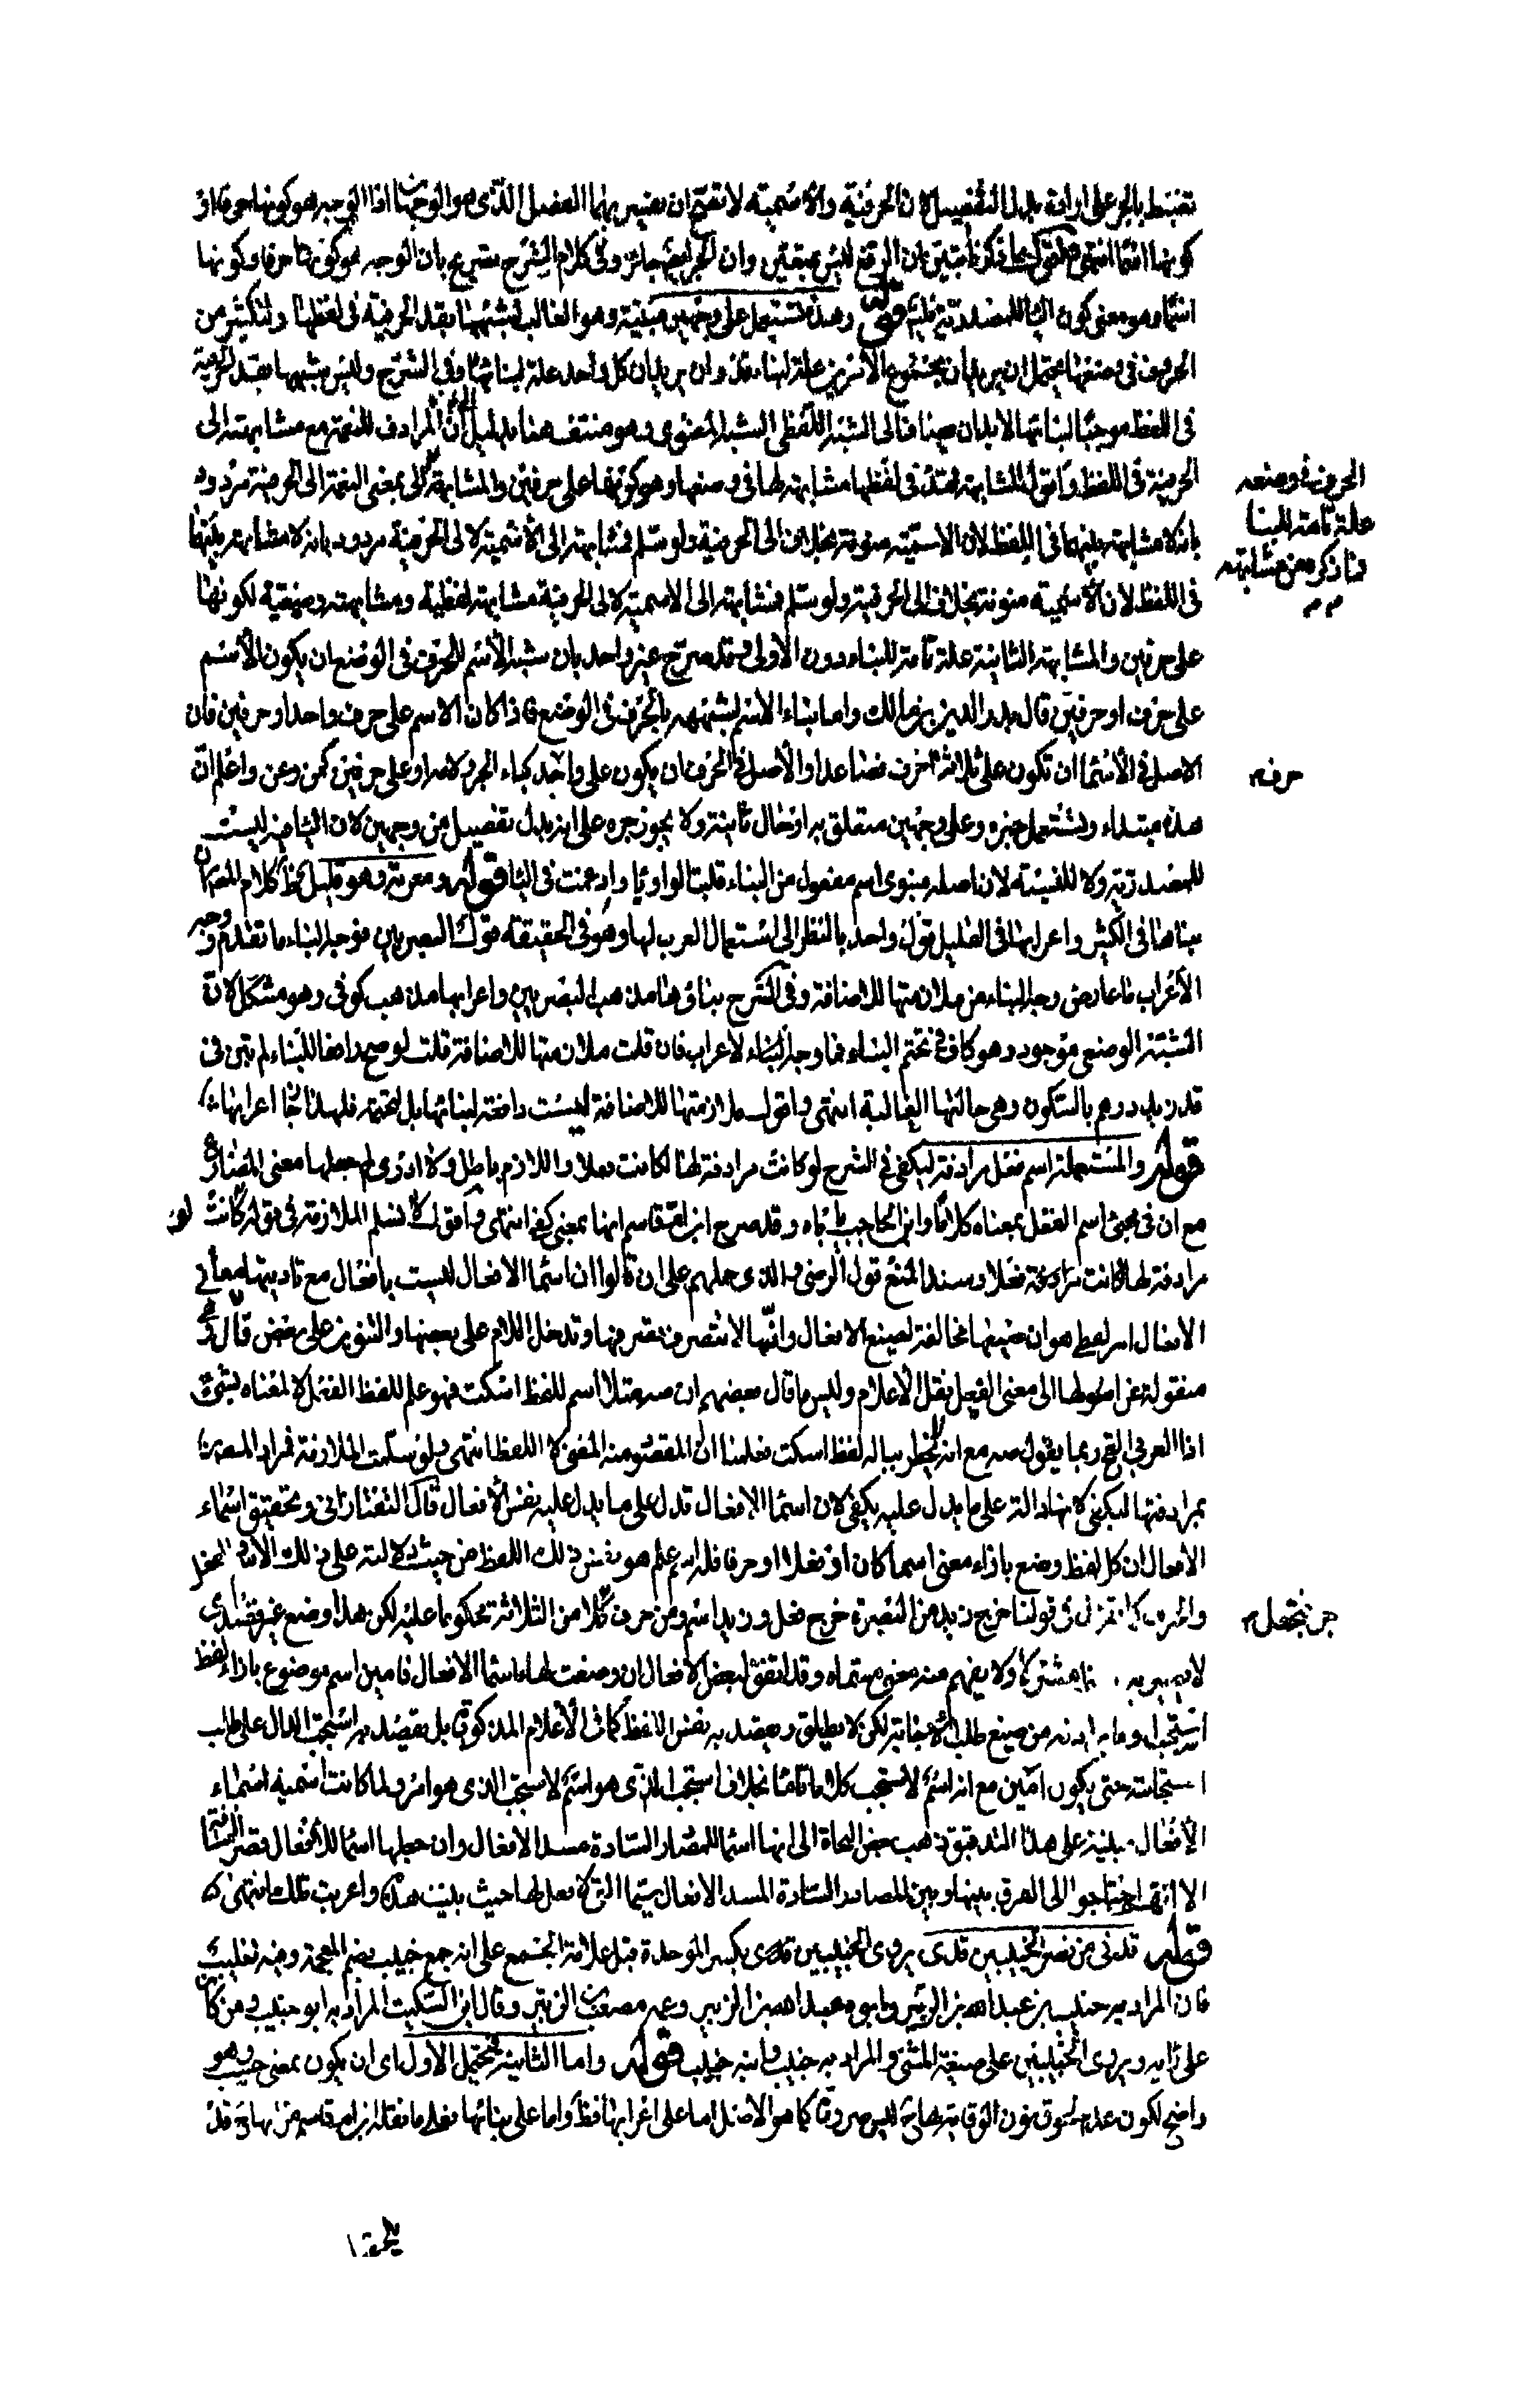 تضبط بالجر على ارادة بدل التفصيل لان الحرفية والاسمية لا تصح ان يعتبر بهما الفصل الذي هو الوجهان اذا الوجه هو كونها حرفا و
كونها اسما انتهى وبما ذكرنا تبين ان الرفع ليس بمتعين وان الجر ايضا جائز وفي كلام الشرح تصريح بان الوجه هو كونها حرفا وكونها
اسما وهو معنى كون الياء للمصدرية قوله وهذه تستعمل على وجهين مبنية وهو الغالب لشبهها بقد الحرفية في لفظها ولكثير من
الحروف في وضعها يحتمل ان يريد ان مجموع الامرين علة لبناء قد وان يريد ان كل واحد علة لبنائها وفي الشرح وليس شبهها بقد الحرفية
في اللفظ موجبا لبنائها
الحرفية في اللفظ واقول المشابهة لقد في لفظها مشابهة لها في وضعها وهو كونها على حرفين والمشابهة الى بمعنى النعمة الى الحرفية مردود
بانه لا مشابهة بينهما في اللفظ لان الاسمية منونة بخلاف الى الحرفية ولو سلم فمشابهة الى الاسمية لالى الحرفية مردود بانه لا مشابهة بينهما
في اللفظ لان الاسمية منونة بخلاف الى الحرفية ولو سلم فمشابهة الى الاسمية لالى الحرفية مشابهة لفظية ومشابهة وضعية لكونها
على حرفين والمشابهة الثانية علة تامة للبناء دون الاولى وقد صرح غير واحد بان شبه الاسم للحرف في الوضع ان يكون الاسم
على حرف او حرفين قال بدر الدين بن مالك واما بناء الاسم لشبهه بالحرف في الوضع فاذا كان الاسم على حرف واحد او حرفين فان
الاصل في الاسماء ان تكون على ثلاثة احرف فصاعدا والاصل في الحرف ان يكون على واحد كباء الجر ولامه او على حرفين كمن وعن واعلم ان
هذه مبتداء وتستعمل خبره وعلى وجهين متعلق به او حال ثابتة ولا يجوز جره على انه بدل تفصيل من وجهين لان الياء فيه ليست
للمصدرية ولا للنسبة لان اصله مبنوى اسم مفعول من البناء قلبت الواو يا وادغمت في اليا قوله ومعربة وهو قليل
بناها في الكثير واعرابها في القليل قول واحد بالنظر الى استعمال العرب لها وهو في الحقيقة قول البصريين فوجه البناء ما تقدم ووجه
الاعراب ما عارض وجه البناء من ملازمتها للاضافة وفي الشرح بناؤها مذهب البصريين واعرابها مذهب كوفي وهو مشكل لان
الشبه الوضعي موجود وهو كاف في تحتم البناء فما وجه الاعراب فان قلت ملازمتها للاضافة قلت لو صح دافعا للبناء لم تبن في
قد زيد درهم بالسكون وهي حالتها الغالبة انتهى واقول ملازمتها للاضافة ليست دافعة لبنائها بل لتحتمه فلهذا جاء اعرابها
قوله والمستعملة اسم فعل مرادفة ليكفي في الشرح لو كانت مرادفة لها لكانت فعلا واللازم باطل ولا ادري لم جعلها معنى المضارع
مع ان في مجئ اسم الفعل بمعناه كلاما وابن الحاجب ياباه وقد صرح ابن ام قاسم انها بمعنى كفى انتهى واقول لا نسلم الملازمة في قوله لو كانت
مرادفة لها لكانت فعلا وسند المنع قول الرضي والذي حملهم على ان قالوا ان اسماء الافعال ليست بافعال مع تاديتها معاني
الافعال امر لفظي هو ان صيغها مخالفة لصيغ الافعال وانها لا تتصرف تصرفها وتدخل اللام على بعضها والتنوين على بعض قال وهي
منقولة عن اصولها الى معنى الفعل نقل الاعلام وليس ما قال بعضهم ان صه مثلا اسم للفظ اسكت فهو علم للفظ الفعل لا لمعناه بشئ
اذ العربي القح ربما يقول صه مع انه لا يخطر بباله لفظ اسكت فعلمنا ان المقصود منه المعنى لا اللفظ انتهى ولو سلمت الملازمة فمراد المصنف
بمرادفتها ليكفي انها دالة على ما يدل عليه يكفي لان اسماء الافعال تدل على ما يدل عليه نفس الافعال قال التفتازاني وتحقيق اسماء
الافعال ان كل لفظ وضع بازاء معنى اسما كان او فعلا او حرفا فله اسم علم هو نفس ذلك اللفظ من حيث دلالته على ذلك الاسم او الفعل
والحرف كما تقول في قولنا خرج زيد من البصرة خرج فعل وزيد اسم ومن حرف جر فتجعل كلا من الثلاثة محكوما عليه لكن هذا وضع غير قصدي
لا يصير به مشتركا ولا يفهم منه معنى مسماه وقد اتفق لبعض الافعال ان وضعت لها اسماء الافعال فامين اسم موضوع بازاء لفظ
استجب وما يرادفه من صيغ طلب الاجابة لكن لا يطلق ويقصد به نفس اللفظ كما في الاعلام المذكورة بل يقصد به استجب الدال على طلب
استجابة حتى يكون امين مع انه اسم لاستجب كلاما تاما بخلاف استجب الذي هو اسم لاستجب الذي هو امر ولما كانت اسمية اسماء
الافعال مبنية على هذا التدقيق ذهب بعض النحاة الى انها اسماء للمصادر السادة مسد الافعال وان جعلها اسماء للافعال قصر للمسافة
الا انهم احتاجوا الى الفرق بينها وبين المصادر السادة المسد الافعال سيما التي لا فعل لها حيث بنيت هذه واعربت تلك انتهى
قوله قدني من نصر الخبيبين قدي يروى الخبيبين قدي بكسر الموحدة قبل علامة الجمع على انه جمع خبيب بضم المعجمة وفيه تغليب
فان المراد به خبيب بن عبد الله بن الزبير وابوه عبد الله بن الزبير وعمه مصعب بن الزبير وقال ابن السكيت المراد به ابو خبيب ومن كان
على رايه ويروى الخبيبين على صيغة المثنى والمراد به خبيب وابنه خبيب قوله واما الثانية فتحتمل الاول اى ان يكون بمعنى حسب وهو
واضح لكون عدم لحوق نون الوقاية لها ليس ضرورة كما هو الاصل اما على اعرابها واما على بنائها فعلى ما نقله ابن ام قاسم من انها
الحرف في وضعه
علة تامة للبنا
وما ذكره من مشابهته
حرف
جر فتجعل